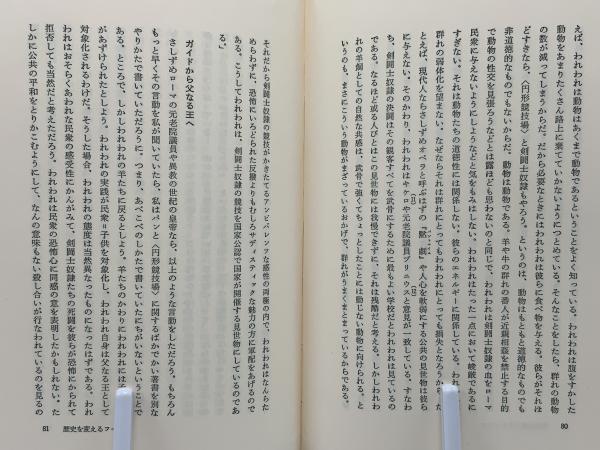 えば、われわれはあくまで動物であるということをよく知っている。われわれは腹をすかした
動物をあまりたくさん路上に棄てていかないようにつとめている。そんなことをしたら、群れの動物
の数が減ってしまうからだ。だから必要なときにはわれわれは彼らに食べ物を与える。彼らがそれほ
どすきなら、〈円形競技場〉と剣闘士奴隷もやろう。というのは、動物はもともと道徳的なものでも
非道徳的なものでもないからだ。動物は動物である。羊や牛の群れの番人が近親相姦を禁止する目的
で動物の性交を見張ろうなどとは露ほども思わないのと同じで、われわれは剣闘士奴隷の血をローマ
民衆に与えないようにしようなどと気をもみはしない。われわれはたった一点において峻厳であるに
すぎない。それは動物たちの道徳性には関係しない。彼らのエネルギーに関係している。われ
群れの弱体化を望まない。なぜなら、群れにとってもわれわれにとっても損失となろうから
とえば、現代人ならさしずめオペラと呼ぶはずの『黙劇』や人心を軟弱にする公共の見世物は彼ら
に与えない。そのかわり、われわれはキケロや元老院議員プリニウスと意見が一致している。すなわ
ち、剣闘士奴隷の決闘はその観客すべてを武骨にするために最もよい学校だとわれわれは見ているの
である。なるほど或る人びとはこの見世物には我慢できずに、それは残酷だと考える。しかしわれわ
れの羊飼としての自然な共感は、武骨で強くてちょっとしたことには動じない動物に向けられる。と
いうのも、まさにこういう動物がまざっているおかげで、群れがうまくまとまっているからである。
80
それだから剣闘士奴隷の競技がかきたてるアンビバレンツな感情の両極の内で、われわれはなんらた
めらわずに、恐怖にいろどられた反撥よりもむしろサディスティックな魅力の方に軍配をあげるので
ある。こうしてわれわれは、剣闘士奴隷の競技を国家公認で国家が開催する見世物にしているのであ
る。」
ガイドから父なる王へ
さしずめローマの元老院議員や異教の世紀の皇帝なら、以上のような言動をしただろう。もちろん
もっと早くその言動を私が聞いていたら、私はパンと〈円形競技場〉に関するばかでかい著書を別な
やりかたで書いていただろうに。つまり、あべこべのしかたで書いていたにちがいないということで
ある。ところで、しかしわれわれの羊たちに戻るとしよう。羊たちのかわりにわれわれには
があずけられたとしよう。われわれの実践が民衆＝子供を対象化し、われわれ自身は父なる王として
対象化されるわけだ。そうした場合、われわれの態度は当然異なったものになったはずである。われ
われはおそらくあわれな民衆の感受性にかんがみて、剣闘士奴隷たちの死闘を彼らが恐怖にかられて
拒否しても当然だと考えただろう。われわれは民衆の恐怖心に同感の意を表明したかもしれない。た
しかに公共の平和をとりかこむようにして、なんの意味もない殺し合いが行なわれているのを見るの
81 歴史を変えるフー